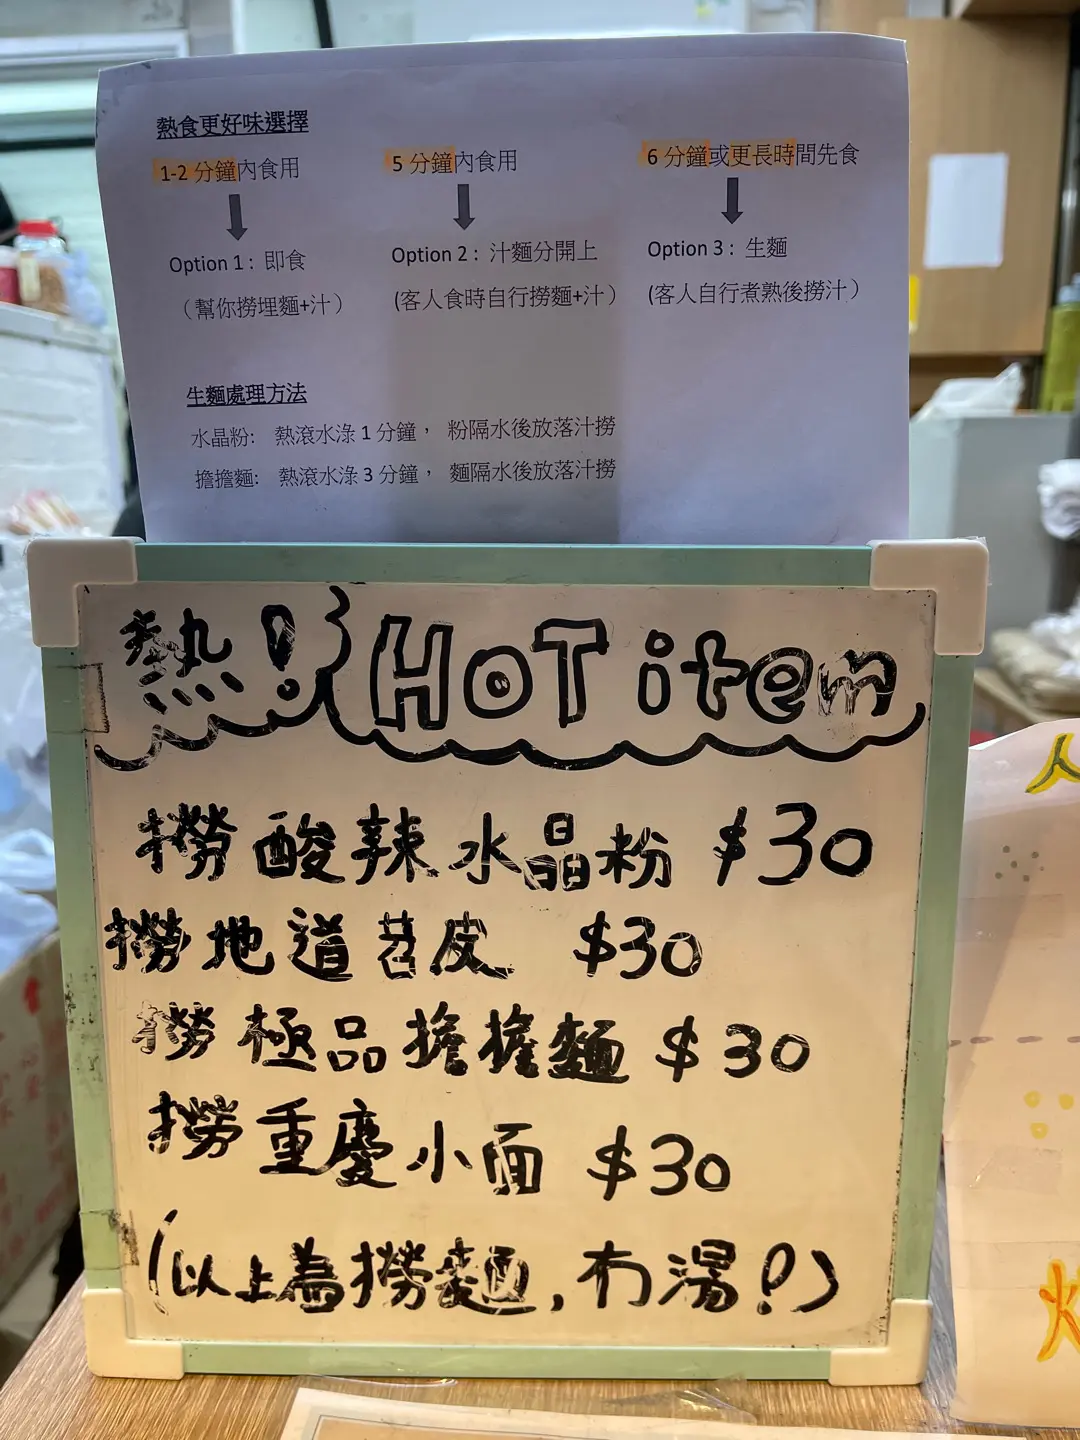 熱食更好味選擇
1-2 分鐘內食用
5 分鐘內食用
6 分鐘或更長時間先食
Option 1 : 即食
Option 2 : 汁麵分開上
Option 3 : 生麵
（幫你撈埋麵+汁）
(客人食時自行撈麵+汁）
(客人自行煮熟後撈汁）
生麵處理方法
水晶粉: 熱滾水淥 1 分鐘， 粉隔水後放落汁撈
擔擔麵: 熱滾水淥 3 分鐘， 麵隔水後放落汁撈
熱! HOT item
撈酸辣水晶粉 $30
撈地道苕皮 $30
撈極品擔擔麵 $30
撈重慶小面 $30
(以上為撈麵, 冇湯!)
人